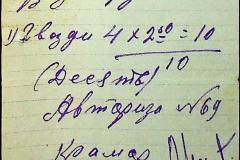 1) Гвозди 4 × 2⁵⁰ = 10
10
(Десять)
Авториза №69
Крамар